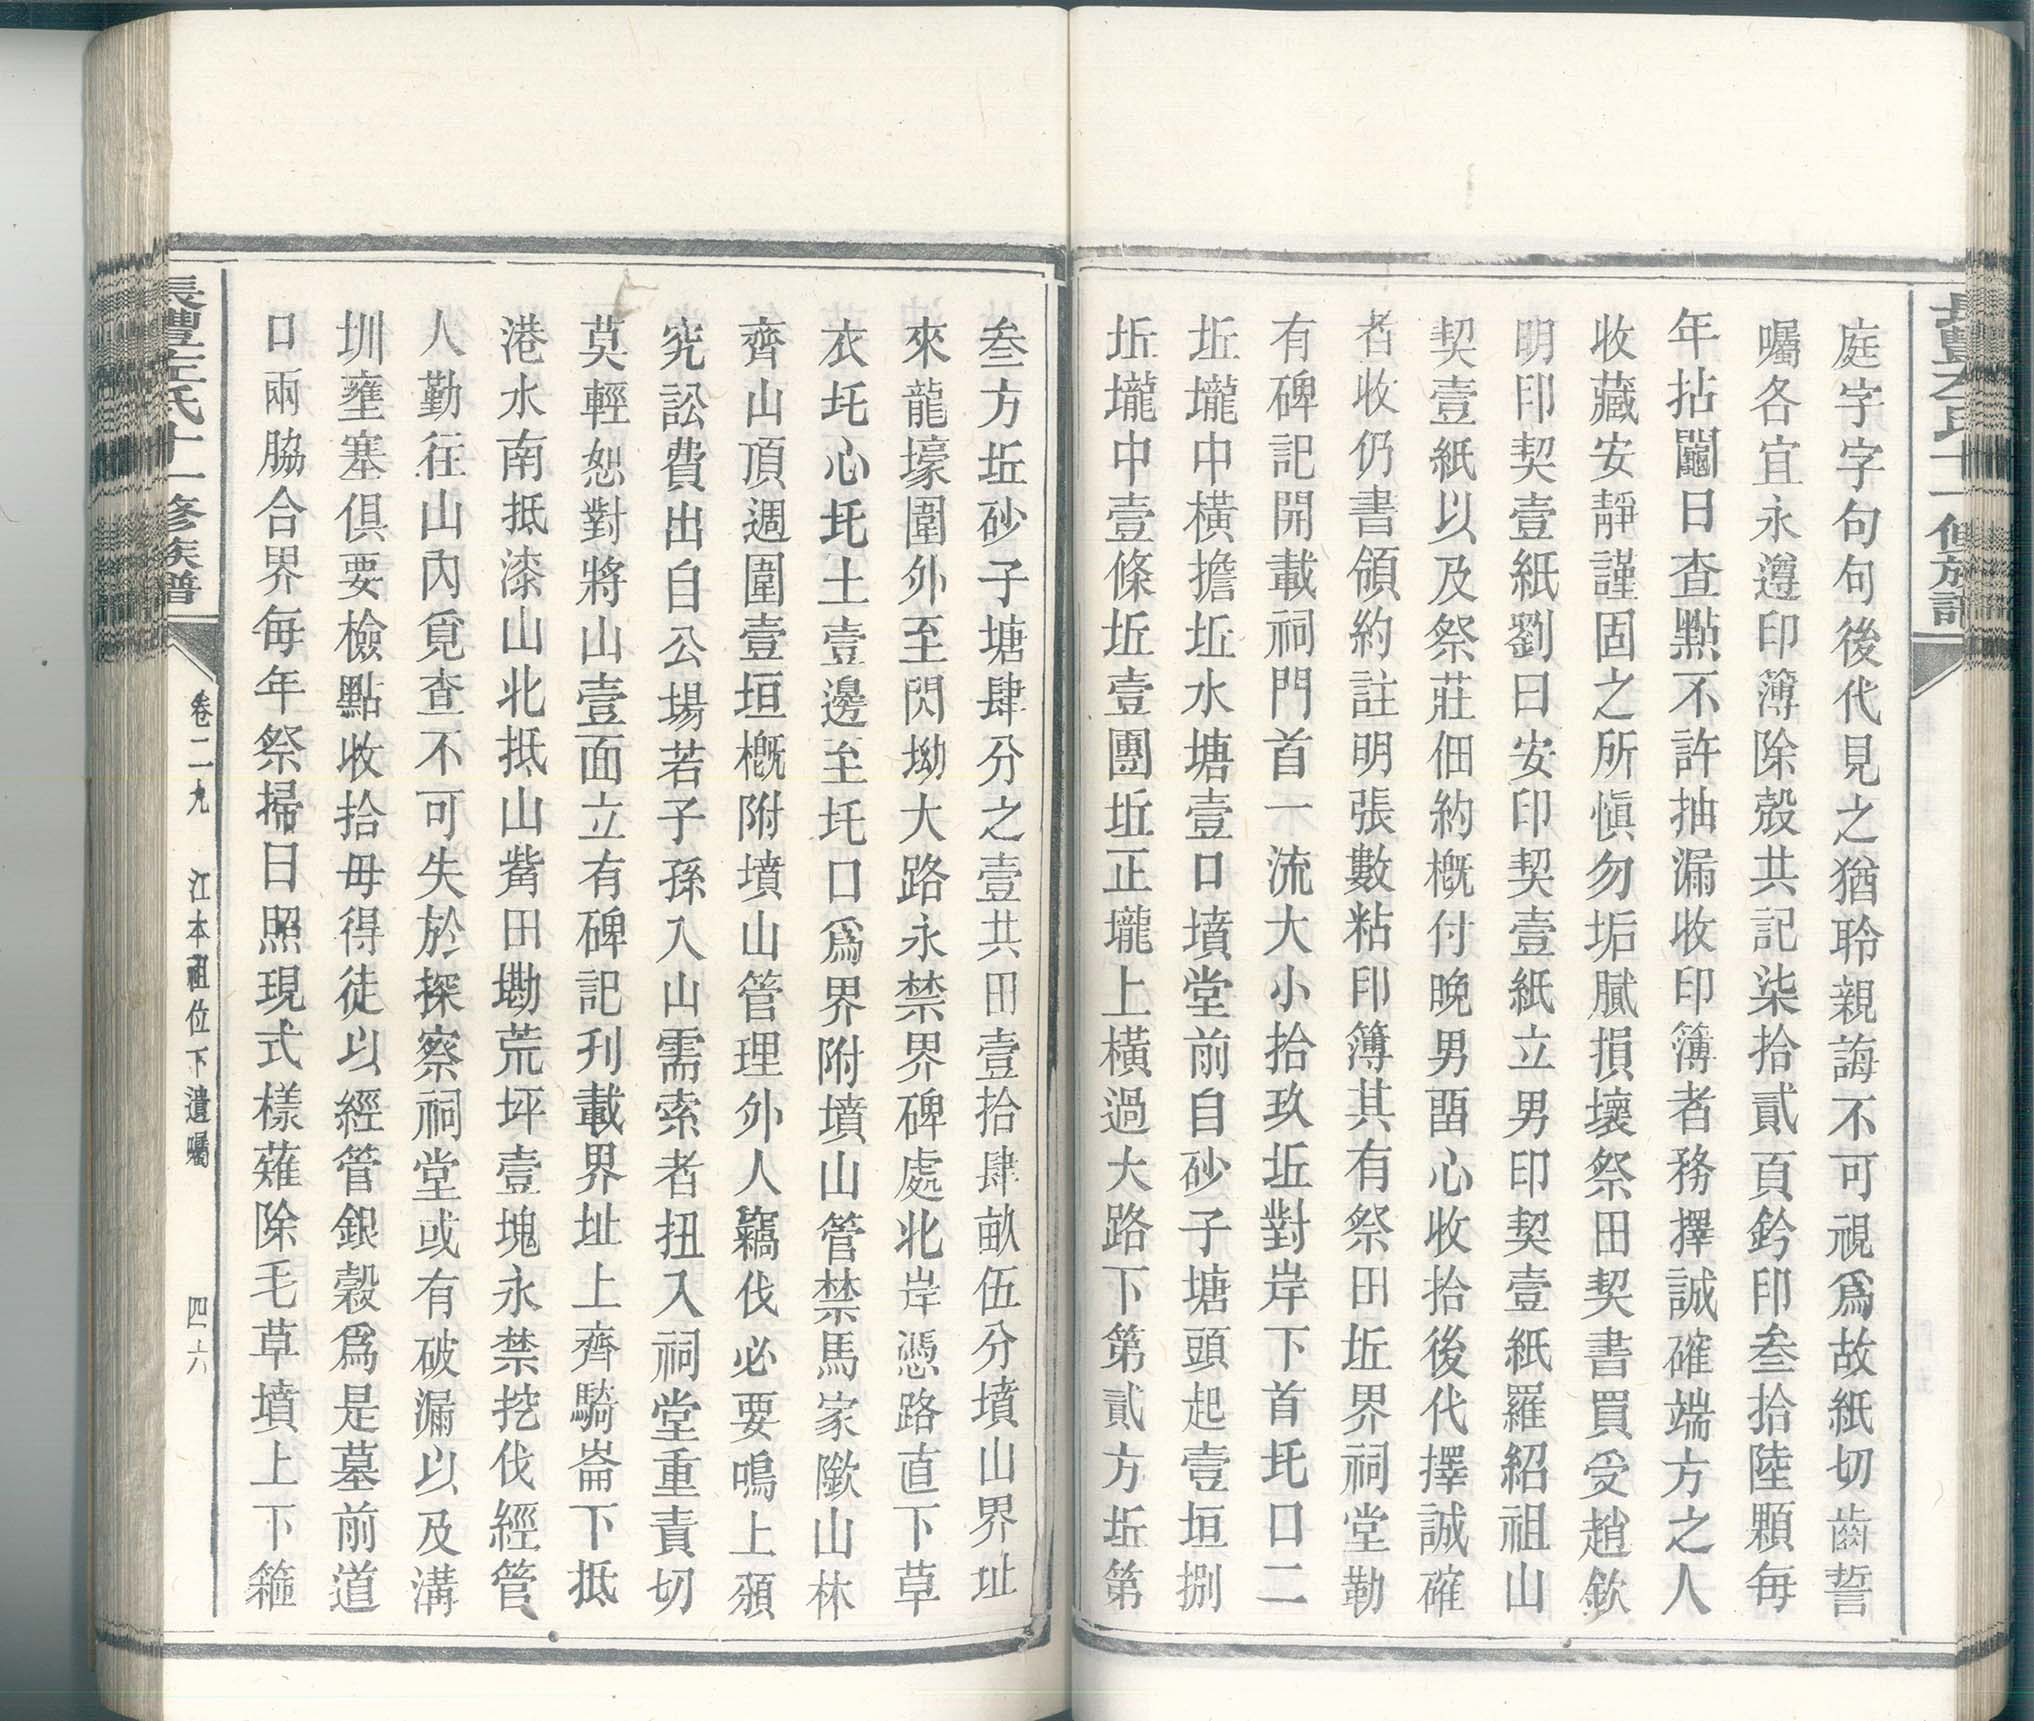 庭字字句句後代見之猶聆親誨不可視爲故紙切齒誓
囑各宜永遵印簿除殼共記柒拾貳頁鈐印叁拾陸顆每
年拈鬮日查點不許抽漏收印簿者務擇誠確端方之人
收藏安靜謹固之所愼勿垢膩損壞祭田契書買受趙欽
明印契壹紙劉日安印契壹紙立男印契壹紙羅紹祖山
契壹紙以及祭莊佃約槪付晚男畱心收拾後代擇誠確
者收仍書領約註明張數粘印簿其有祭田坵界祠堂勒
有碑記開載祠門首一流大小拾玖坵對岸下首圫口二
坵壠中橫擔坵水塘壹口墳堂前自砂子塘頭起壹垣捌
坵壠中壹條坵壹團坵正壠上橫過大路下第貳方坵第
叁方坵砂子塘肆分之壹共田壹拾肆畝伍分墳山界址
來龍壕圍外至閃坳大路永禁界碑處北岸憑路直下草
衣圫心圫土壹邊至圫口爲界附墳山管禁馬家隞山林
齊山頂週圍壹垣槪附墳山管理外人竊伐必要鳴上頟
究訟費出自公場若子孫入山需索者扭入祠堂重責切
莫輕恕對將山壹面立有碑記刋載界址上齊騎崙下抵
港水南抵漆山北抵山觜田墈荒坪壹塊永禁挖伐經管
人勤往山內覓查不可失於探察祠堂或有破漏以及溝
圳壅塞俱要檢點收拾毋得徒以經管銀穀爲是墓前道
口兩脇合界每年祭掃日照現式樣薙除毛草墳上下箍
長豐左氏十一修族譜
卷二九
江本祖位下遺囑
四六